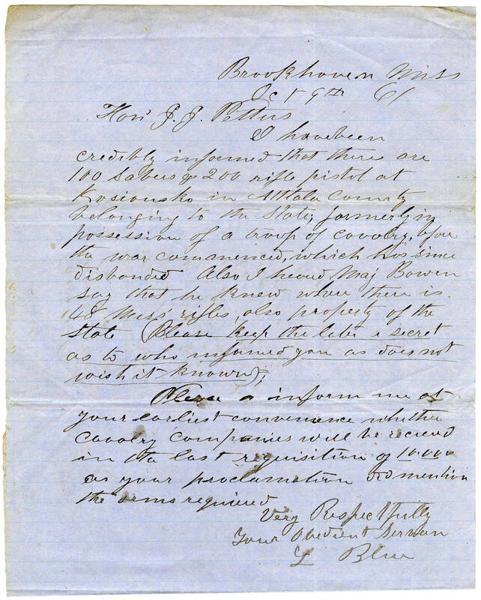 Brookhoven Miss
Oct 9th 61
Hon J. J. Pettus
I have been
credibly informed that there are
100 Sabers & 200 rifle pistol at
Kosiousko in Attala County
belonging to the State, formerly in
possession of a troop of cavalry, before
the war commenced, which has since
disbanded Also I heard Maj Bowen
say that he knew where there is
48 Miss rifles, also property of the
State (Please keep the later a secret
as to who informed you as does not
wish it known);
Please inform me at
your earliest convenience whether
cavalry companies will be received
in the last requisition of 10.000
as your proclamation did mention
the arms required
Very Respectfully
Your Obedient Servan
Blue